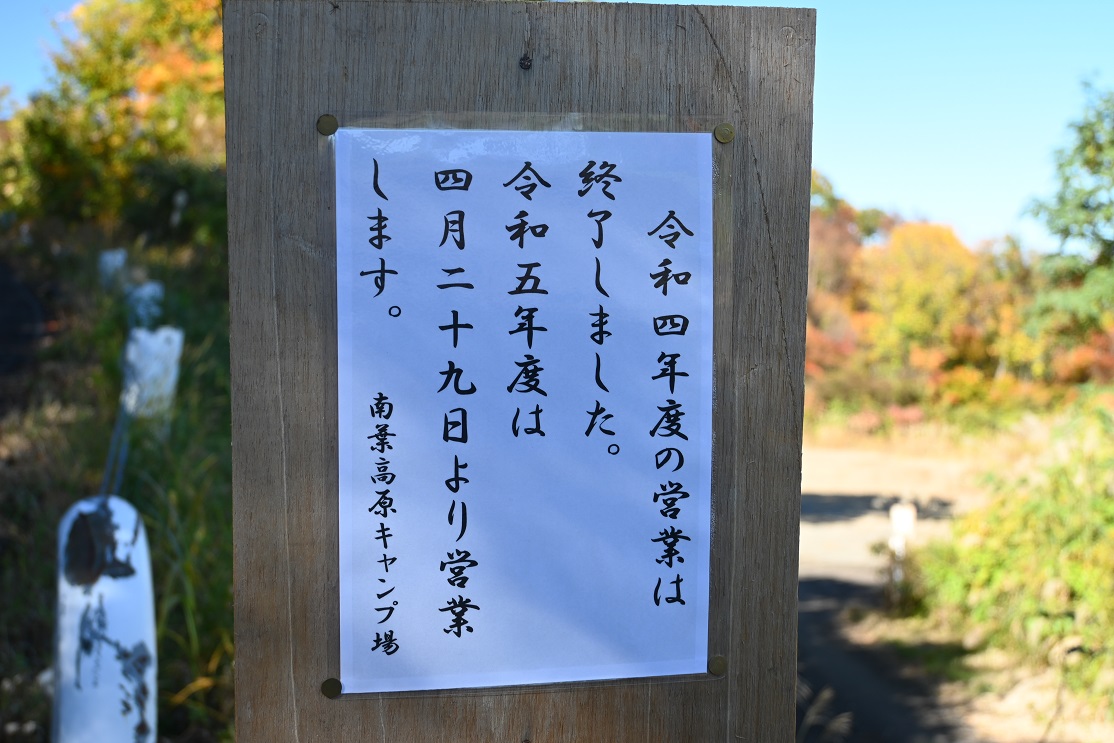 令和四年度の営業は
終了しました。
令和五年度は
四月二十九日より営業
します。
南葉高原キャンプ場